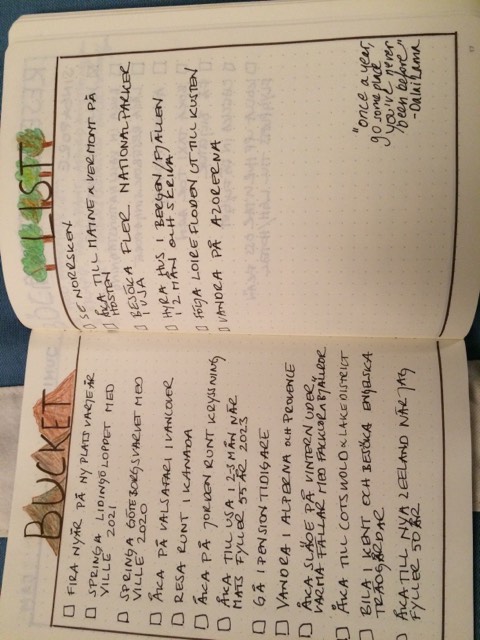 BUCKET
FIRA NYÅR PÅ NY PLATS VARJE ÅR
SPRINGA LIDINGÖLOPPET MED
VILLE 2021
SPRINGA GÖTEBORGSVARVET MED
VILLE 2020
ÅKA PÅ VALSAFARI I VANCOUVER
RESA RUNT I KANADA
ÅKA PÅ JORDEN RUNT KRYSSNING
ÅKA TILL USA I 2-3 MÅN NÄR
MATS FYLLER 55 ÅR 2023
GÅ I PENSION TIDIGARE
VANDRA I ALPERNA OCH PROVENCE
ÅKA SLÄDE PÅ VINTERN UNDER
VARMA FÄLLAR MED FACKLOR & BJÄLLROR
ÅKA TILL COTSWOLD & LAKE DISTRICT
BILA I KENT OCH BESÖKA ENGELSKA
TRÄDGÅRDAR
ÅKA TILL NYA ZEELAND NÄR JAG
FYLLER 50 ÅR
LIST
SE NORRSKEN
ÅKA TILL MAINE & VERMONT PÅ
HÖSTEN
BESÖKA FLER NATIONALPARKER
I USA
HYRA HUS I BERGEN/FJÄLLEN
I 2 MÅN OCH SKRIVA
FÖLJA LOIRE FLODEN UT TILL KUSTEN
VANDRA PÅ AZORERNA
"once a year,
go some place
you've never
been before"
-Dalai Lama